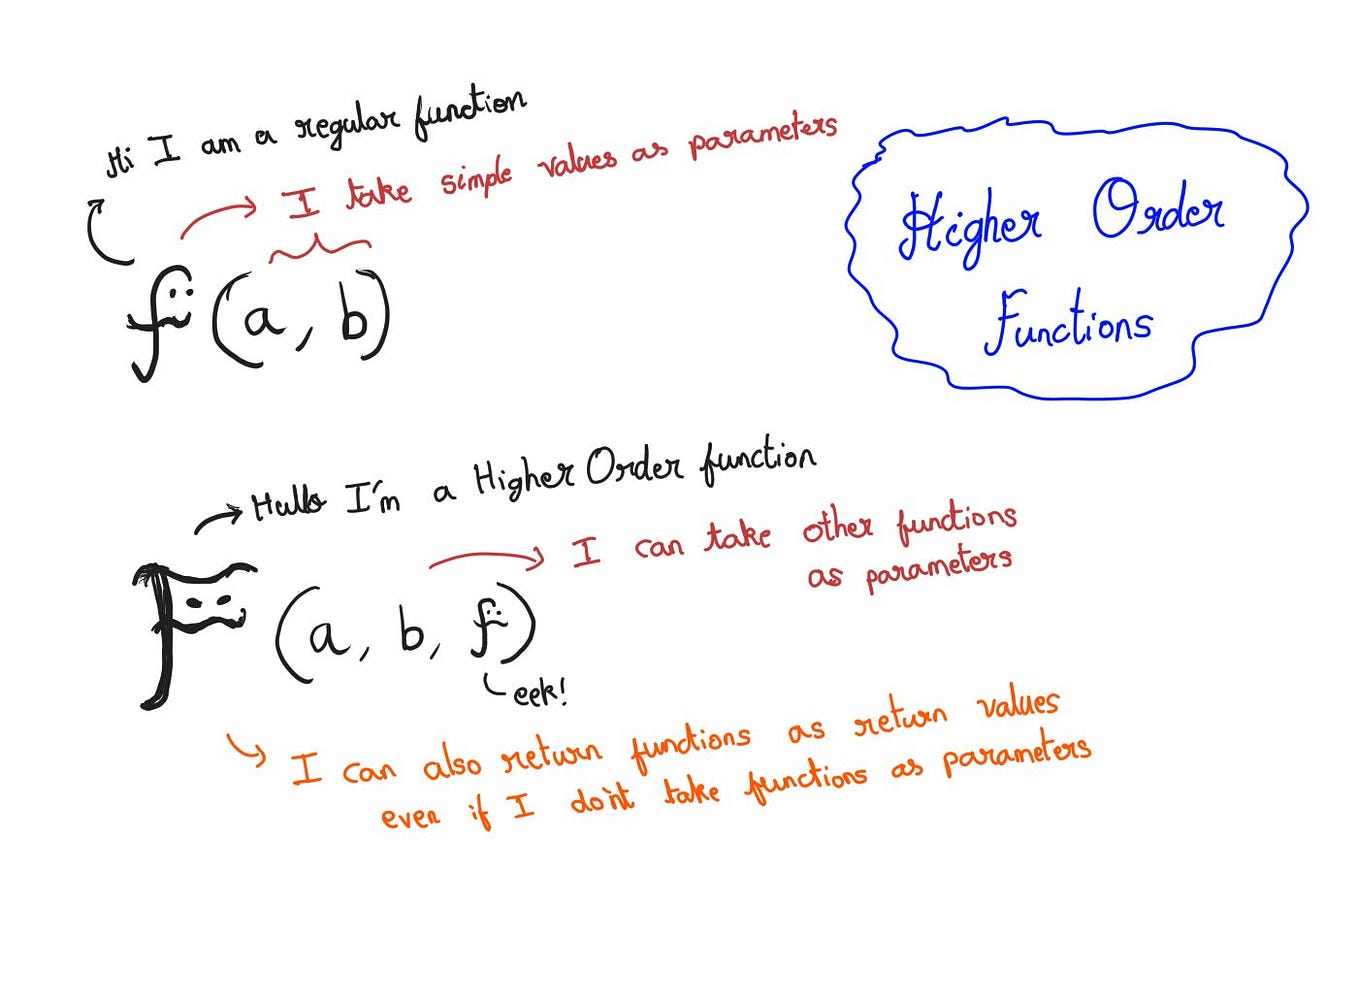 Hi I am a regular function
I take simple values as parameters
f (a, b)
Higher Order
Functions
Hello I'm a Higher Order function
I can take other functions
as parameters
F (a, b, f)
eek!
I can also return functions as return values
even if I don't take functions as parameters